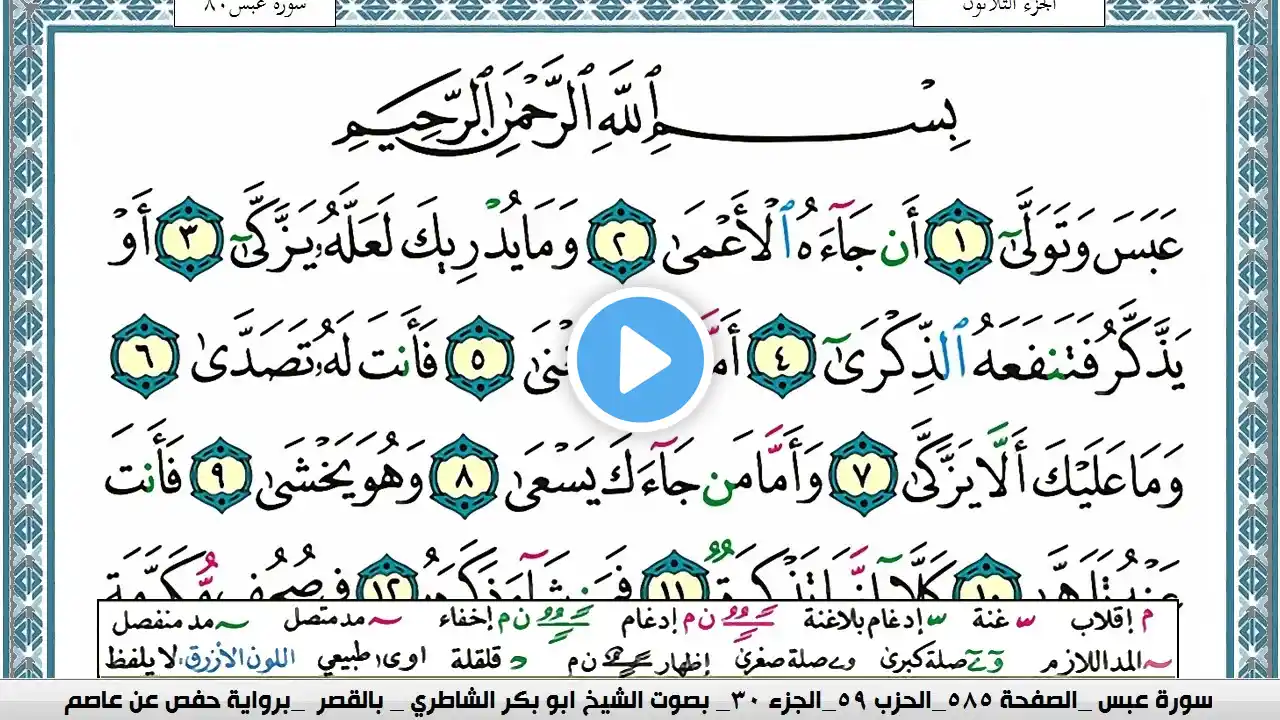 سورة عبس ٨٠
الجزء الثلاثون
بِسْمِ ٱللَّهِ ٱلرَّحْمَٰنِ ٱلرَّحِيمِ
عَبَسَ وَتَوَلَّىٰٓ ١ أَن جَآءَهُ ٱلْأَعْمَىٰ ٢ وَمَا يُدْرِيكَ لَعَلَّهُۥ يَزَّكَّىٰٓ ٣ أَوْ
يَذَّكَّرُ فَتَنفَعَهُ ٱلذِّكْرَىٰٓ ٤ ٥ فَأَنتَ لَهُۥ تَصَدَّىٰ ٦
وَمَا عَلَيْكَ أَلَّا يَزَّكَّىٰ ٧ وَأَمَّا مَن جَآءَكَ يَسْعَىٰ ٨ وَهُوَ يَخْشَىٰ ٩ فَأَنتَ
عَنْهُ تَلَهَّىٰ ١٠ كَلَّآ إِنَّهَا تَذْكِرَةٌ ١١ فَمَن شَآءَ ذَكَرَهُۥ ١٢ فِى صُحُفٍ مُّكَرَّمَةٍ
م إقلاب س غنة س إدغام بلاغنة ن م إدغام ن م إخفاء مد متصل مد منفصل
المد اللازم صلة كبرى صلة صغرى إظهار ن م د قلقلة اوى طبيعي اللون الأزرق: لا يلفظ
سورة عبس _الصفحة ٥٨٥_الحزب ٥٩_الجزء ٣٠_ بصوت الشيخ ابو بكر الشاطري _ بالقصر _برواية حفص عن عاصم